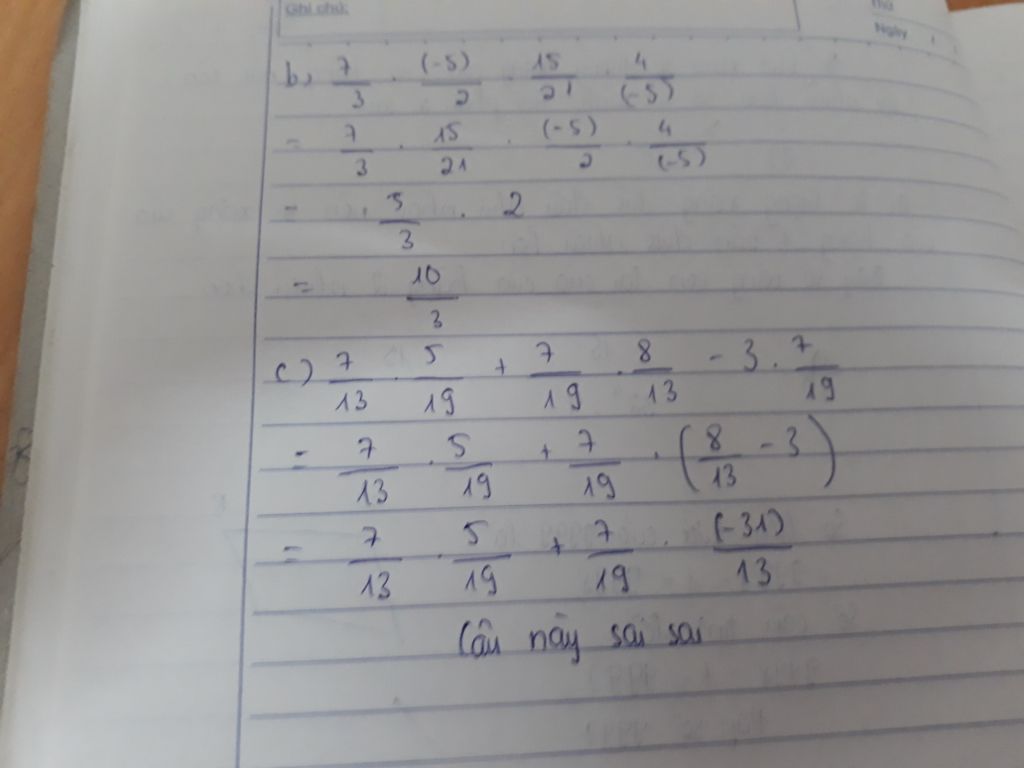 Ghi chú:
Thứ
Ngày
b, 7/3 . (-5)/2 . 15/21 . 4/(-5)
= 7/3 . 15/21 . (-5)/2 . 4/(-5)
= 5/3 . 2
= 10/3
c) 7/13 . 5/19 + 7/19 . 8/13 - 3 . 7/19
= 7/13 . 5/19 + 7/19 . (8/13 - 3)
= 7/13 . 5/19 + 7/19 . (-31)/13
Câu này sai sai